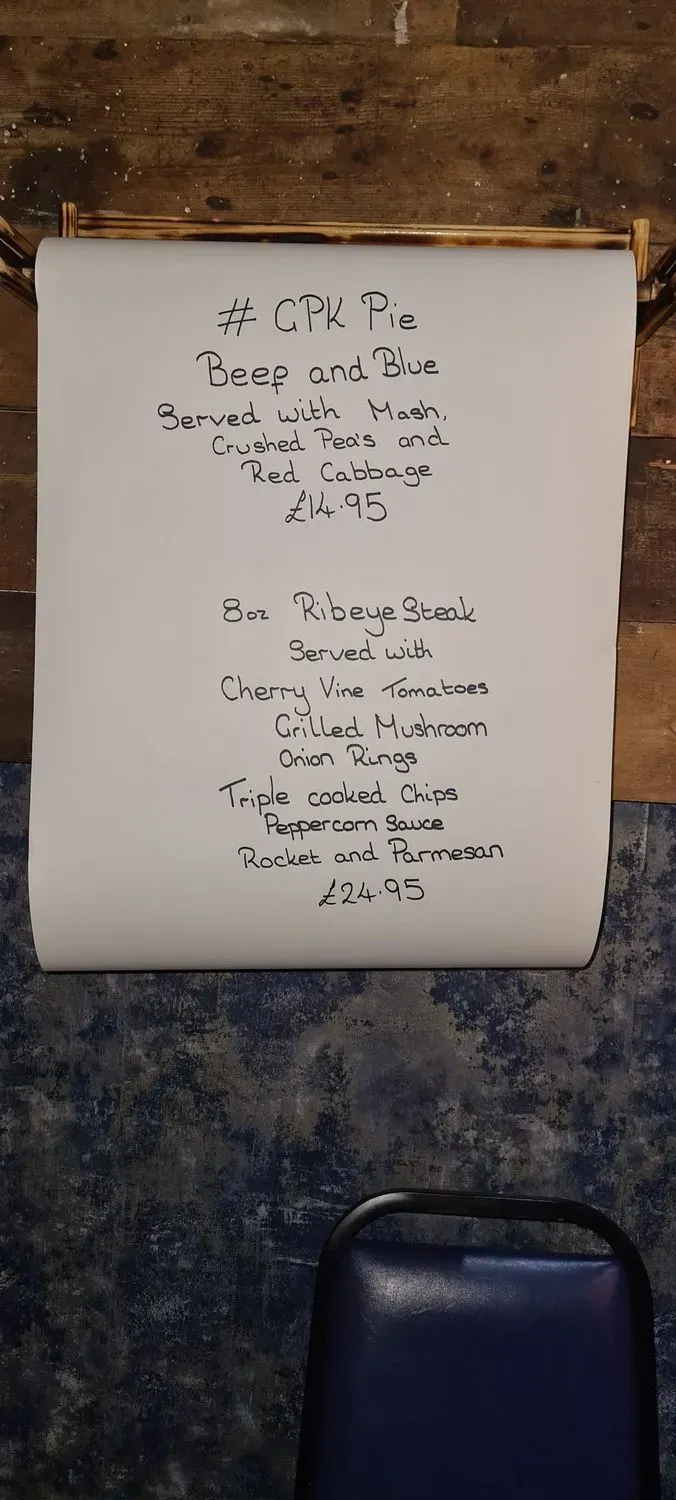 # GPK Pie
Beef and Blue
Served with Mash,
Crushed Pea's and
Red Cabbage
£14.95
8oz Ribeye Steak
Served with
Cherry Vine Tomatoes
Grilled Mushroom
Onion Rings
Triple cooked Chips
Peppercorn Sauce
Rocket and Parmesan
£24.95